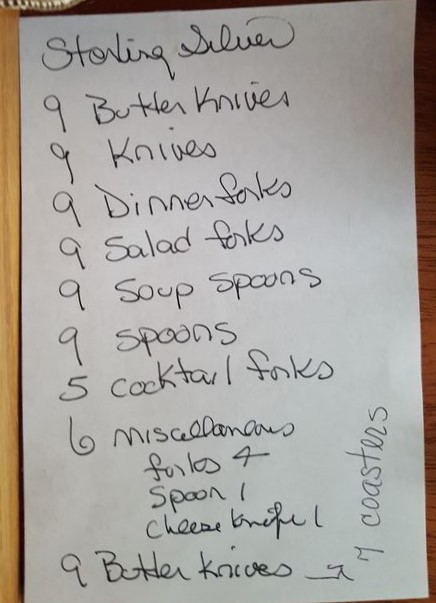 Sterling Silver
9 Butter Knives
9 Knives
9 Dinner forks
9 Salad forks
9 Soup Spoons
9 Spoons
5 cocktail forks
6 miscellanous
forks 4
Spoon 1
cheese knife 1
9 Butter Knives →
7 coasters